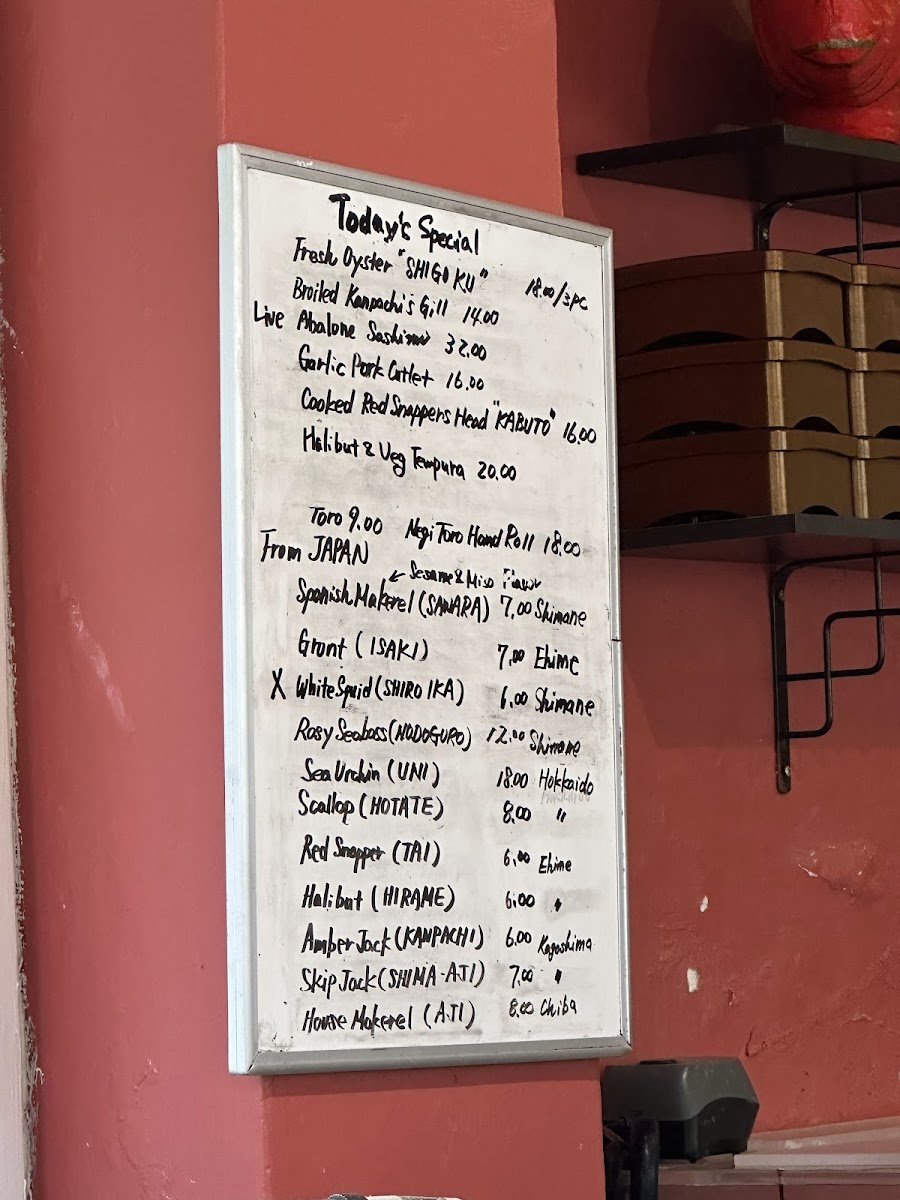 Today's Special
Fresh Oyster "SHIGOKU" 18.00/3PC
Broiled Kanpachi's Gill 14.00
Live Abalone Sashimi 32.00
Garlic Pork Cutlet 16.00
Cooked Red Snappers Head "KABUTO" 16.00
Halibut & Veg Tempura 20.00
Toro 9.00 Negi Toro Hand Roll 18.00
From JAPAN
Sesame & Miso Flavor
Spanish Makerel (SAWARA) 7.00 Shimane
Gront (ISAKI) 7.00 Ehime
X White Squid (SHIRO IKA) 6.00 Shimane
Rosy Seabass (NODOGURO) 12.00 Shimane
Sea Urchin (UNI) 18.00 Hokkaido
Scallop (HOTATE) 8.00 "
Red Snapper (TAI) 6.00 Ehime
Halibut (HIRAME) 6.00 "
Amber Jack (KANPACHI) 6.00 Kagoshima
Skip Jack (SHIMA-AJI) 7.00 "
House Makerel (AJI) 8.00 Chiba